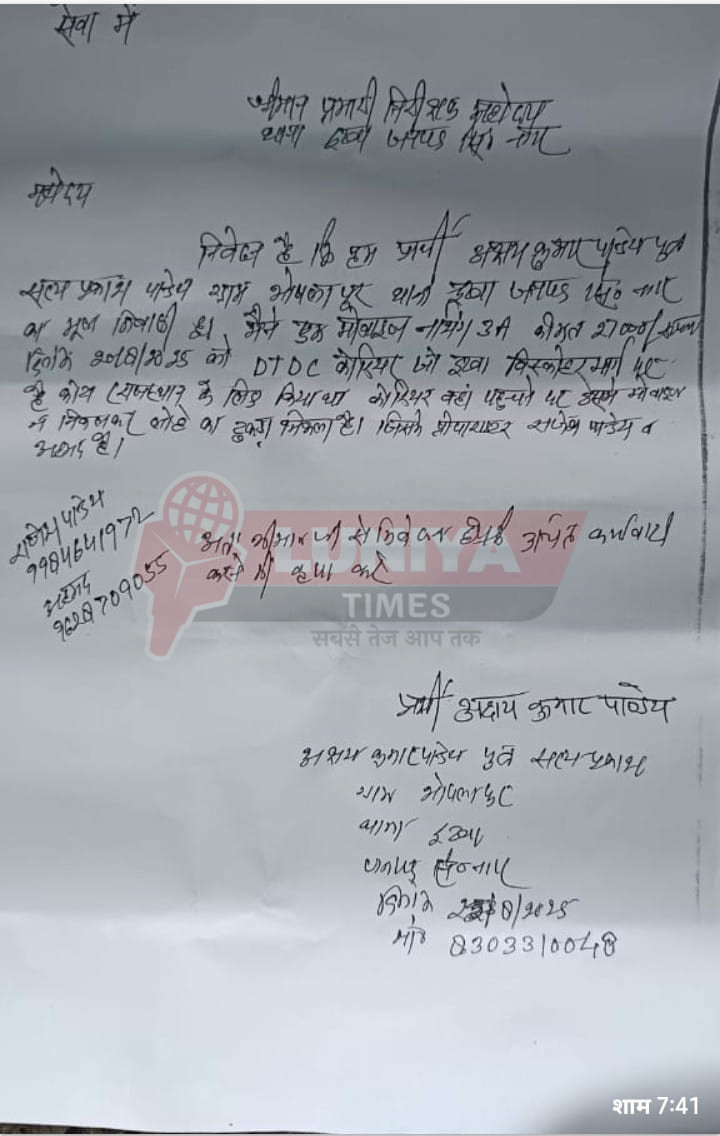 सेवा में
श्रीमान प्रभारी निरीक्षक महोदय
थाना इटवा जनपद सि० नगर
महोदय
निवेदन है कि हम प्रार्थी अक्षय कुमार पांडेय पुत्र
सत्य प्रकाश पांडेय ग्राम भोपलापुर थाना इटवा जनपद सि० नगर
का मूल निवासी हूं। मैंने एक मोबाइल नाथिंग 3A कीमत 27000/
दिनांक 20/8/2025 को DTDC कोरियर जो इटवा बिस्कोहर मार्ग पर
है कोरियर वहां पहुंचने पर उसमें मोबाइल
न निकलकर लोहे का टुकड़ा निकला है। जिसके प्रोपराइटर राजेश पांडेय व
अहमद है।
राजेश पांडेय
9984641972
अहमद
9628709055
अतः श्रीमान जी से निवेदन है कि उचित कार्यवाही
करने की कृपा करें
LUNIYA
TIMES
सबसे तेज आप तक
प्रार्थी अक्षय कुमार पाण्डेय
अक्षय कुमार पांडेय पुत्र सत्य प्रकाश
ग्राम भोपलापुर
थाना इटवा
जनपद सि० नगर
दिनांक /8/2025
मो० 8303310048
शाम 7:41